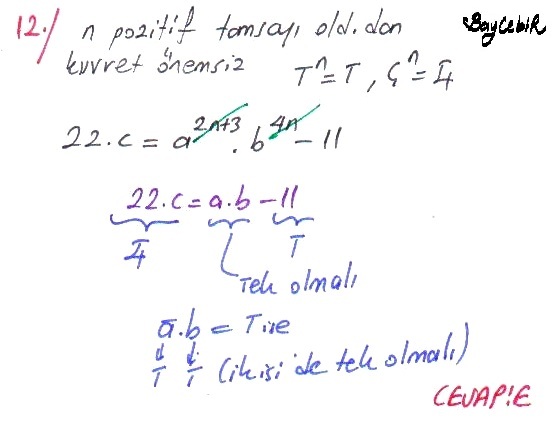 12.) n pozitif tamsayı old.dan
BayCebir
kuvvet önemsiz Tⁿ=T, Çⁿ=Ç
22.c = a^{2n+3}.b^{4n} - 11
22.c = a.b - 11
Ç T
Tek olmalı
a.b = T ise
T T (ikisi de tek olmalı)
CEVAP:E